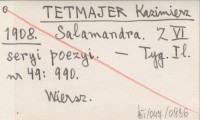 TETMAJER Kazimierz
1908. Salamandra. Z VI
seryi poezyi. — Tyg. Il.
nr 49: 990.
Wiersz.